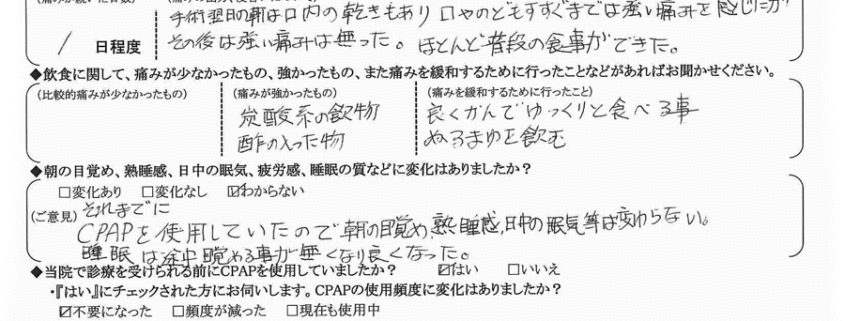 手術翌日の朝は口内の乾きもあり口やのどもすすぐまでは強い痛みを感じたが
/ 日程度 その後は強い痛みは無った。ほとんど普段の食事ができた。
◆飲食に関して、痛みが少なかったもの、強かったもの、また痛みを緩和するために行ったことなどがあればお聞かせください。
(比較的痛みが少なかったもの) (痛みが強かったもの) (痛みを緩和するために行ったこと)
炭酸系の飲物 良くかんでゆっくりと食べる事
酢の入った物 ぬるまゆを飲む
◆朝の目覚め、熟睡感、日中の眠気、疲労感、睡眠の質などに変化はありましたか?
□変化あり □変化なし ☑わからない
(ご意見) それまでに
CPAPを使用していたので朝の目覚め、熟睡感、日中の眠気等は変わらない。
睡眠は途中覚める事が無くなり良くなった。
◆当院で診療を受けられる前にCPAPを使用していましたか? ☑はい □いいえ
・『はい』にチェックされた方にお伺いします。CPAPの使用頻度に変化はありましたか?
☑不要になった □頻度が減った □現在も使用中